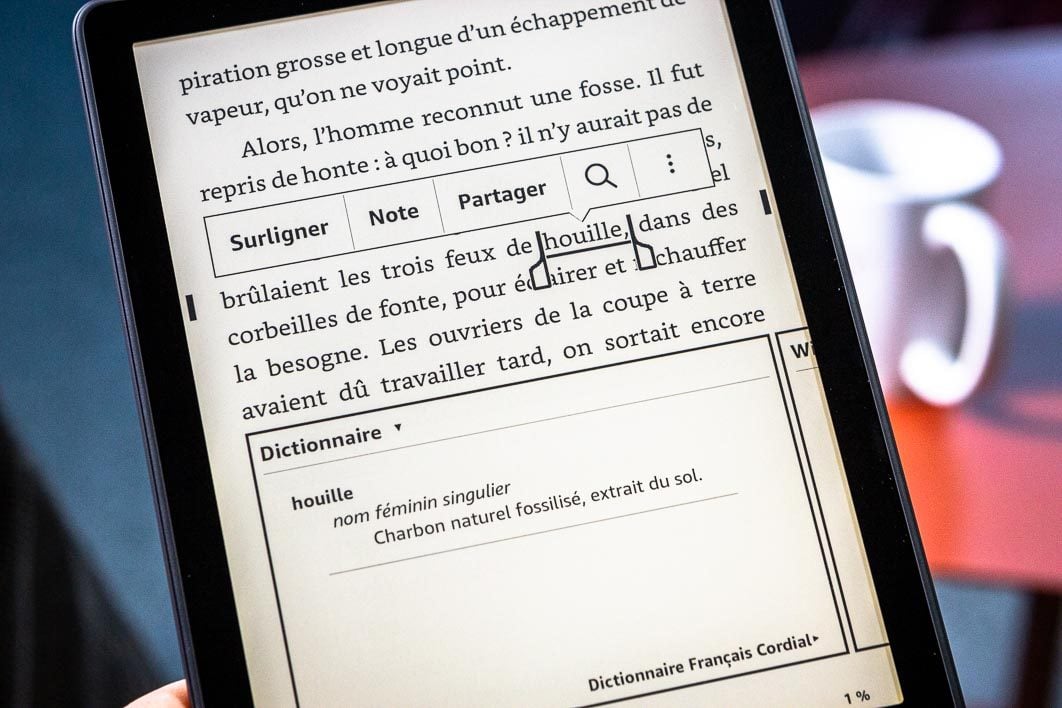 piration grosse et longue d'un échappement de
vapeur, qu'on ne voyait point.
Alors, l'homme reconnut une fosse. Il fut
repris de honte : à quoi bon ? il n'y aurait pas de
s,
Surligner Note Partager
el
brûlaient les trois feux de houille, dans des
corbeilles de fonte, pour éclairer et chauffer
la besogne. Les ouvriers de la coupe à terre
avaient dû travailler tard, on sortait encore
Dictionnaire
houille
nom féminin singulier
Charbon naturel fossilisé, extrait du sol.
Dictionnaire Français Cordial
1 %